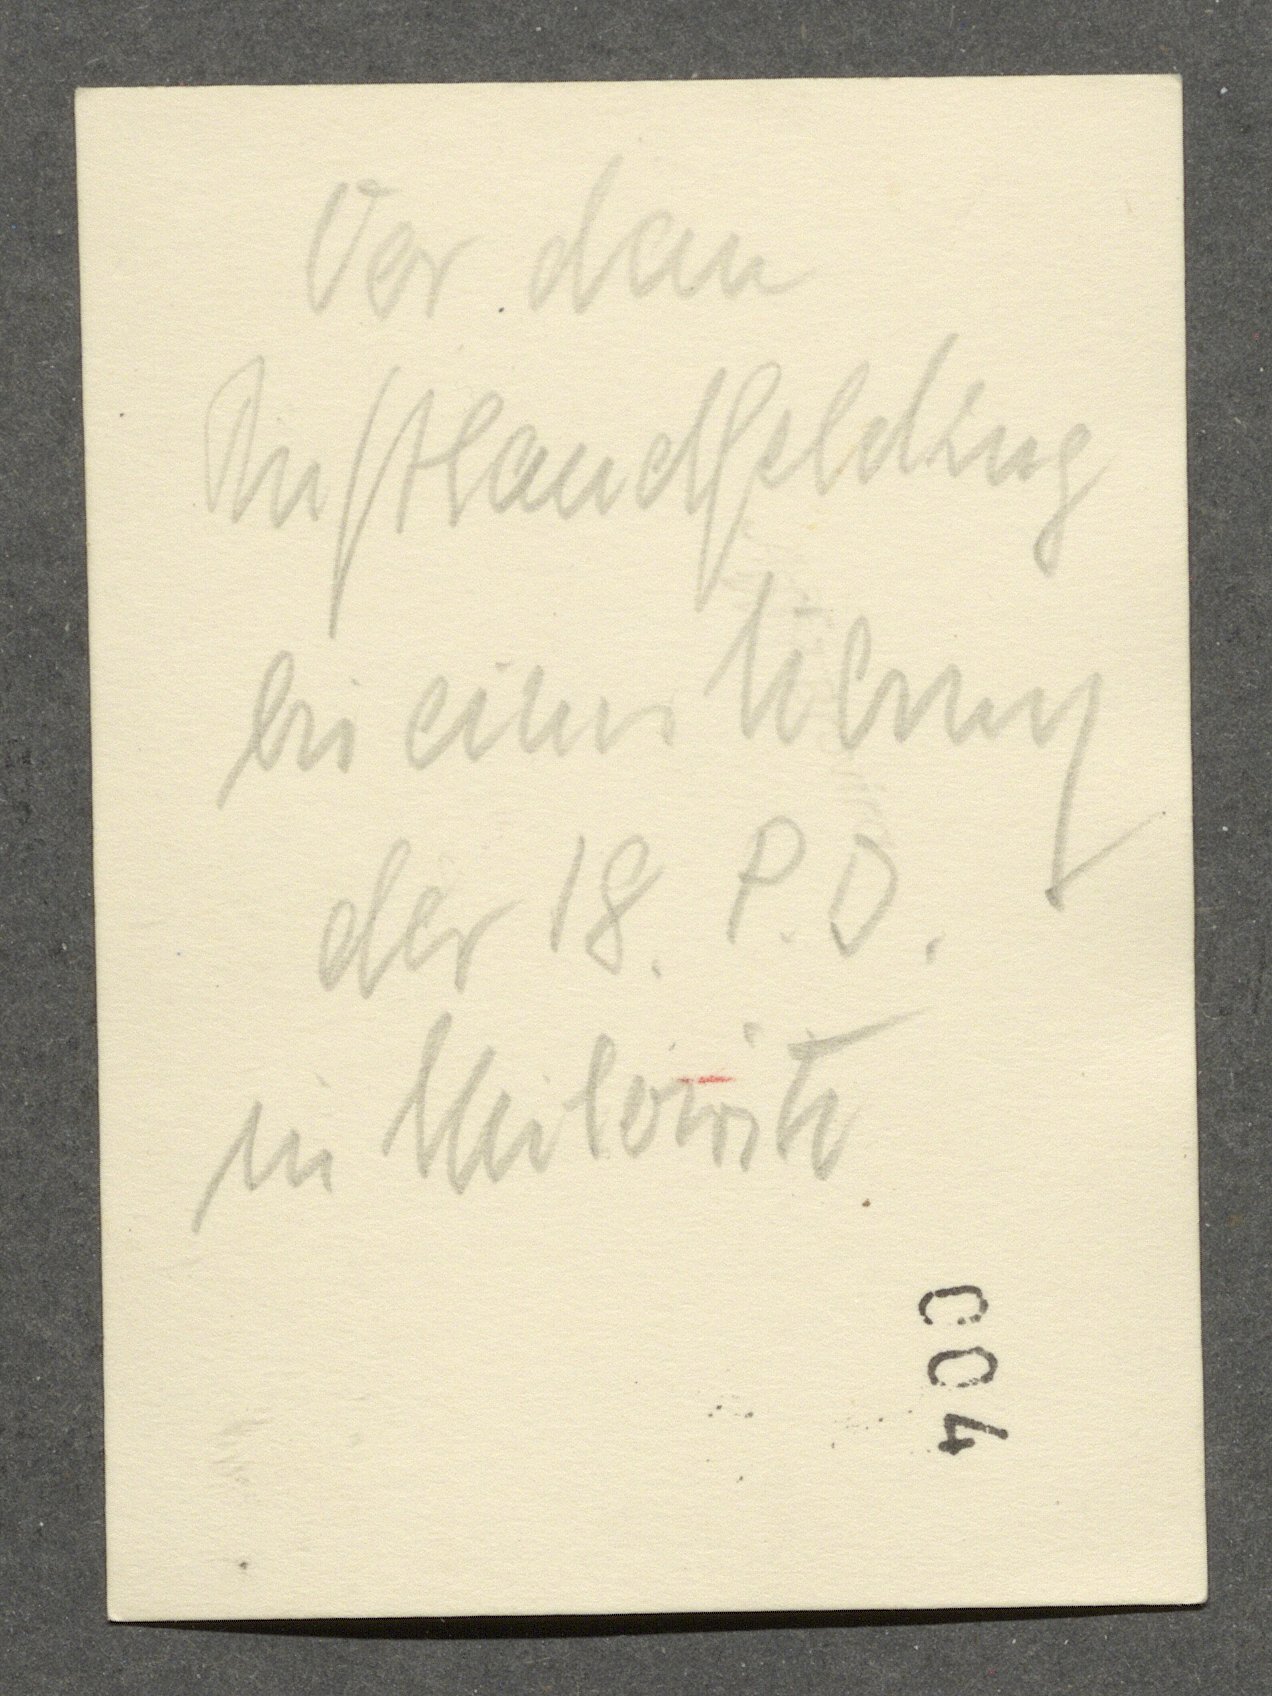 Vor dem
Rußlandfeldzug
bei einer Übung
der 18. P.D.
in Milowitz
004